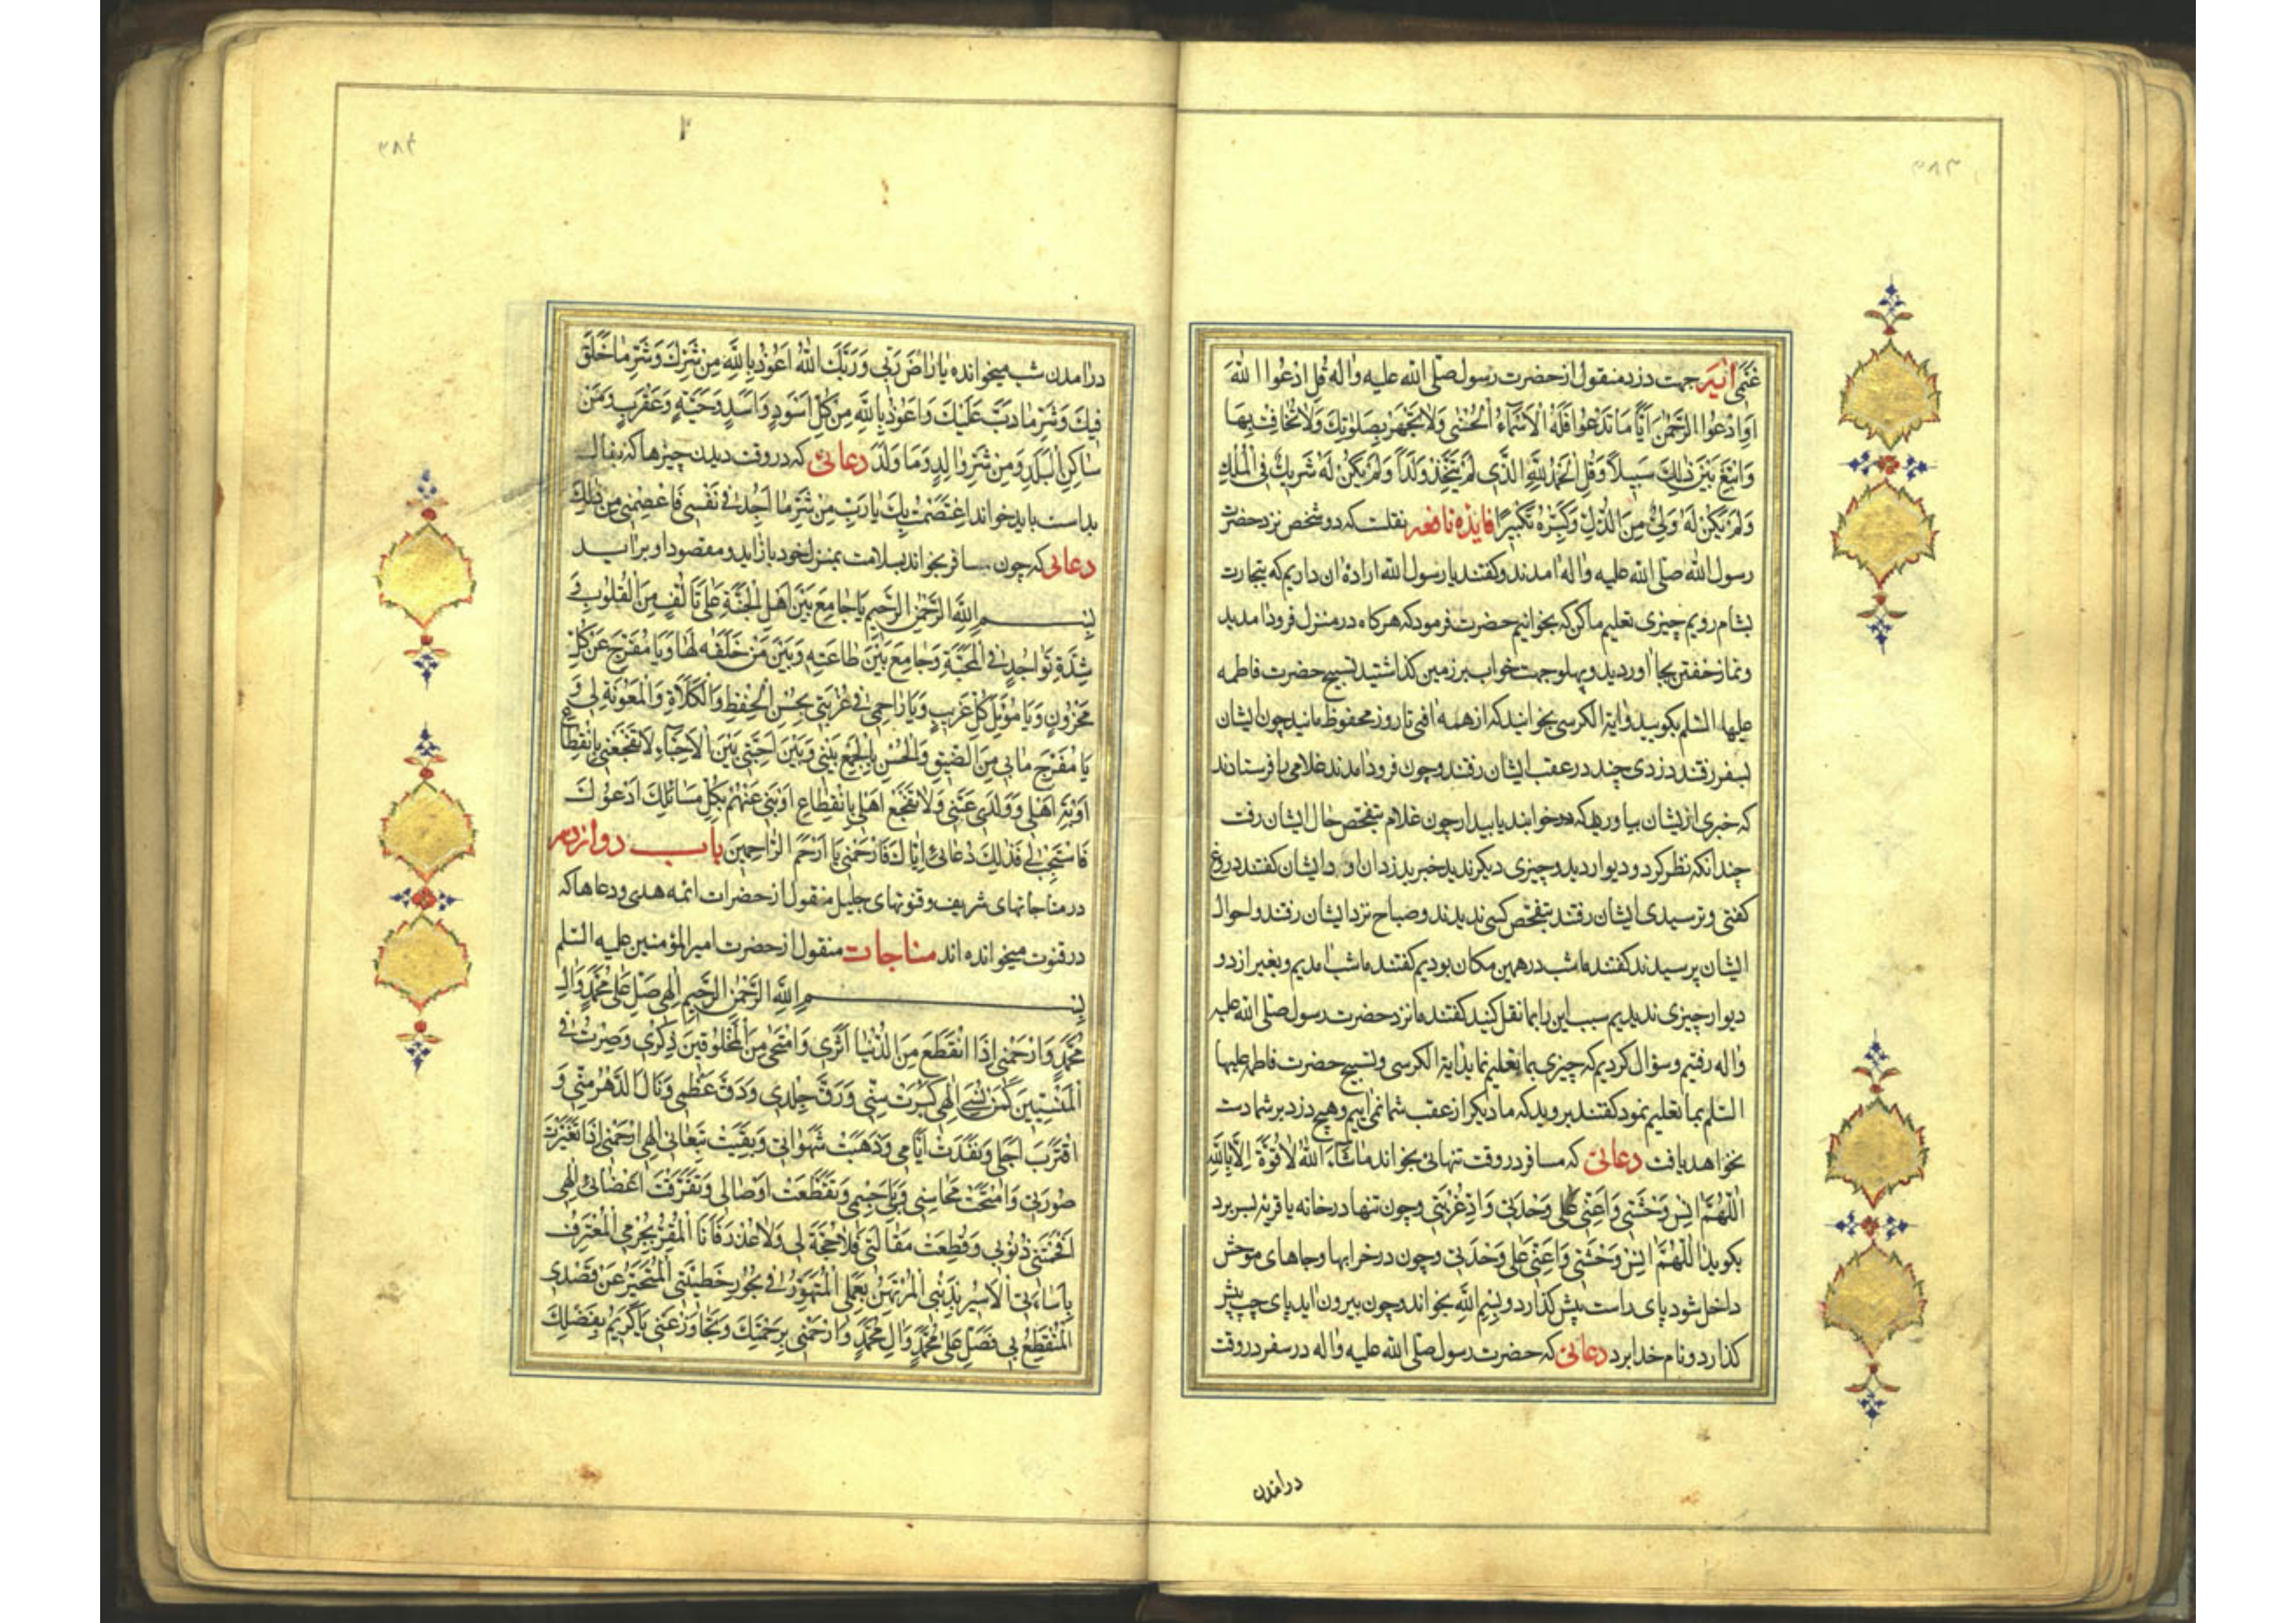 ۳۸۳
غَمّى ایضًا جهت دزد منقول از حضرت رسول صلى الله عليه واله قُلِ ادْعُوا اللّٰهَ
اَوِ ادْعُوا الرَّحْمٰنَ اَيًّا مَا تَدْعُوا فَلَهُ الْاَسْمٰاءُ الْحُسْنٰى وَلٰا تَجْهَرْ بِصَلٰوتِكَ وَلٰا تُخٰافِتْ بِهٰا
وَابْتَغِ بَيْنَ ذٰلِكَ سَبيلًا وَقُلِ الْحَمْدُ لِلّٰهِ الَّذى لَمْ يَتَّخِذْ وَلَدًا وَلَمْ يَكُنْ لَهُ شَريكٌ فِى الْمُلْكِ
وَلَمْ يَكُنْ لَهُ وَلِىٌّ مِنَ الذُّلِّ وَكَبِّرْهُ تَكْبيرًا فایدهٔ نافعه نقلست که دو شخص نزد حضرت
رسول الله صلى الله عليه واله امدند وکفتند یا رسول الله اراده ان داریم که بتجارت
بشام رویم چیزی تعلیم ما کن که بخوانیم حضرت فرمود که هرکاه در منزل فرود امدید
ونماز خفتن بجا اوردید وپهلو جهت خواب بر زمین کذاشتید تسبیح حضرت فاطمه
علیها السلم بکویید وایة الکرسی بخوانید که از همه افتی تا روز محفوظ مانید چون ایشان
بسفر رفتند دزدی چند در عقب ایشان رفتند وچون فرود امدند غلامی را فرستادند
که خبری از ایشان بیاورد که در خوابند یا بیدار چون غلام بتفحص حال ایشان رفت
چندانکه نظر کرد دو دیوار دید وچیزی دیکر ندید خبر بدزدان داد ایشان کفتند دروغ
کفتی وترسیدی ایشان رفتند بتفحص کسی ندیدند وصباح نزد ایشان رفتند واحوال
ایشان پرسیدند کفتند ماشب در همین مکان بودیم کفتند ماشب امدیم وبغیر از دو
دیوار چیزی ندیدیم سبب این را بما نقل کنید کفتند ما نزد حضرت رسول صلى الله عليه
واله رفتیم وسؤال کردیم که چیزی بما تعلیم نماید ایة الکرسی وتسبیح حضرت فاطمه علیها
السلم بما تعلیم نمود کفتند بروید که ما دیکر از عقب شما نمی اییم وهیچ دزد بر شما دست
نخواهد یافت دعائى که مسافر در وقت تنهائى بخواند مٰا شٰاءَ اللّٰهُ لٰا قُوَّةَ اِلّٰا بِاللّٰهِ
اَللّٰهُمَّ انِسْ وَحْشَتى وَاَعِنّى عَلٰى وَحْدَتى وَادِّ غُرْبَتى وچون تنها در خانه یا قریه بسر برد
بکوید اَللّٰهُمَّ انِسْ وَحْشَتى وَاَعِنّى عَلٰى وَحْدَتى وچون در خرابها وجاهای موحش
داخل شود پای راست پیش کذارد وبِسْمِ اللّٰهِ بخواند وچون بیرون اید پای چپ پیش
کذارد ونام خدا برد دعائى که حضرت رسول صلى الله عليه واله در سفر در وقت
درامدن
۳۸۴
درامدن شب میخوانده یٰا اَرْضُ رَبّى وَرَبُّكِ اللّٰهُ اَعُوذُ بِاللّٰهِ مِنْ شَرِّكِ وَشَرِّ مٰا خُلِقَ
فيكِ وَشَرِّ مٰا دَبَّ عَلَيْكِ وَاَعُوذُ بِاللّٰهِ مِنْ كُلِّ اَسْوَدٍ وَاَسَدٍ وَحَيَّةٍ وَعَقْرَبٍ وَمِنْ
سٰاكِنِ الْبَلَدِ وَمِنْ شَرِّ وٰالِدٍ وَمٰا وَلَدَ دعائى که در وقت دیدن چیزها که بفال
بداست باید خواند اِعْتَصَمْتُ بِكَ يٰا رَبِّ مِنْ شَرِّ مٰا اَجِدُ فى نَفْسى فَاعْصِمْنى مِنْ ذٰلِكَ
دعائى که چون مسافر بخواند بسلامت بمنزل خود باز اید ومقصود او براید
بِسْمِ اللّٰهِ الرَّحْمٰنِ الرَّحيمِ يٰا جٰامِعَ بَيْنَ اَهْلِ الْجَنَّةِ عَلٰى تَاَلُّفٍ مِنَ الْقُلُوبِ فى
شِدَّةِ تَوٰاجُدٍ فِى الْمَحَبَّةِ وَجٰامِعَ بَيْنَ طٰاعَتِهِ وَبَيْنَ مَنْ خَلَقَهُ لَهٰا وَيٰا مُفَرِّجَ عَنْ كُلِّ
مَحْزُونٍ وَيٰا مُؤَمَّلَ كُلِّ غَريبٍ وَيٰا رٰاحِمى فى غُرْبَتى بِحُسْنِ الْحِفْظِ وَالْكَلٰاءَةِ وَالْمَعُونَةِ لى وَ
يٰا مُفَرِّجَ مٰا بى مِنَ الضّيقِ وَالْحُزْنِ بِالْجَمْعِ بَيْنى وَبَيْنَ اَحِبَّتى بَيْنَ الْاَحِبّٰاءِ لٰا تَفْجَعْنى بِانْقِطٰاعِ
اَوْبَةِ اَهْلى وَوَلَدى عَنّى وَلٰا تَفْجَعْ اَهْلى بِانْقِطٰاعِ اَوْبَتى عَنْهُمْ بِكُلِّ مَسٰائِلِكَ اَدْعُوكَ
فَاسْتَجِبْ لى فَذٰلِكَ دُعٰائى اِيّٰاكَ فَارْحَمْنى يٰا اَرْحَمَ الرّٰاحِمينَ باب دوازدهم
در مناجاتهای شریف وقنوتهای جلیل منقول از حضرات ائمه هدی ودعاها که
در قنوت میخوانده اند مناجات منقول از حضرت امیر المؤمنین علیه السلم
بِسْمِ اللّٰهِ الرَّحْمٰنِ الرَّحيمِ اِلٰهى صَلِّ عَلٰى مُحَمَّدٍ وَاٰلِ
مُحَمَّدٍ وَارْحَمْنى اِذَا انْقَطَعَ مِنَ الدُّنْيٰا اَثَرى وَامْتَحٰى مِنَ الْمَخْلُوقينَ ذِكْرى وَصِرْتُ فِى
الْمَنْسِيّينَ كَمَنْ نُسِىَ اِلٰهى كَبُرَتْ سِنّى وَرَقَّ جِلْدى وَدَقَّ عَظْمى وَنٰالَ الدَّهْرُ مِنّى وَ
اقْتَرَبَ اَجَلى وَنَفِدَتْ اَيّٰامى وَذَهَبَتْ شَهَوٰاتى وَبَقِيَتْ تَبِعٰاتى اِلٰهى ارْحَمْنى اِذٰا تَغَيَّرَتْ
صُورَتى وَامْتَحَتْ مَحٰاسِنى وَبَلِىَ جِسْمى وَتَقَطَّعَتْ اَوْصٰالى وَتَفَرَّقَتْ اَعْضٰائى اِلٰهى
اَفْحَمَتْنى ذُنُوبى وَقُطِعَتْ مَقٰالَتى فَلٰا حُجَّةَ لى وَلٰا عُذْرَ فَاَنَا الْمُقِرُّ بِجُرْمى الْمُعْتَرِفُ
بِاِسٰاءَتى الْاَسيرُ بِذَنْبى الْمُرْتَهَنُ بِعَمَلى الْمُتَهَوِّرُ فى بُحُورِ خَطيئَتى الْمُتَحَيِّرُ عَنْ قَصْدى
الْمُنْقَطِعُ بى فَصَلِّ عَلٰى مُحَمَّدٍ وَاٰلِ مُحَمَّدٍ وَارْحَمْنى بِرَحْمَتِكَ وَتَجٰاوَزْ عَنّى يٰا كَريمُ بِفَضْلِكَ